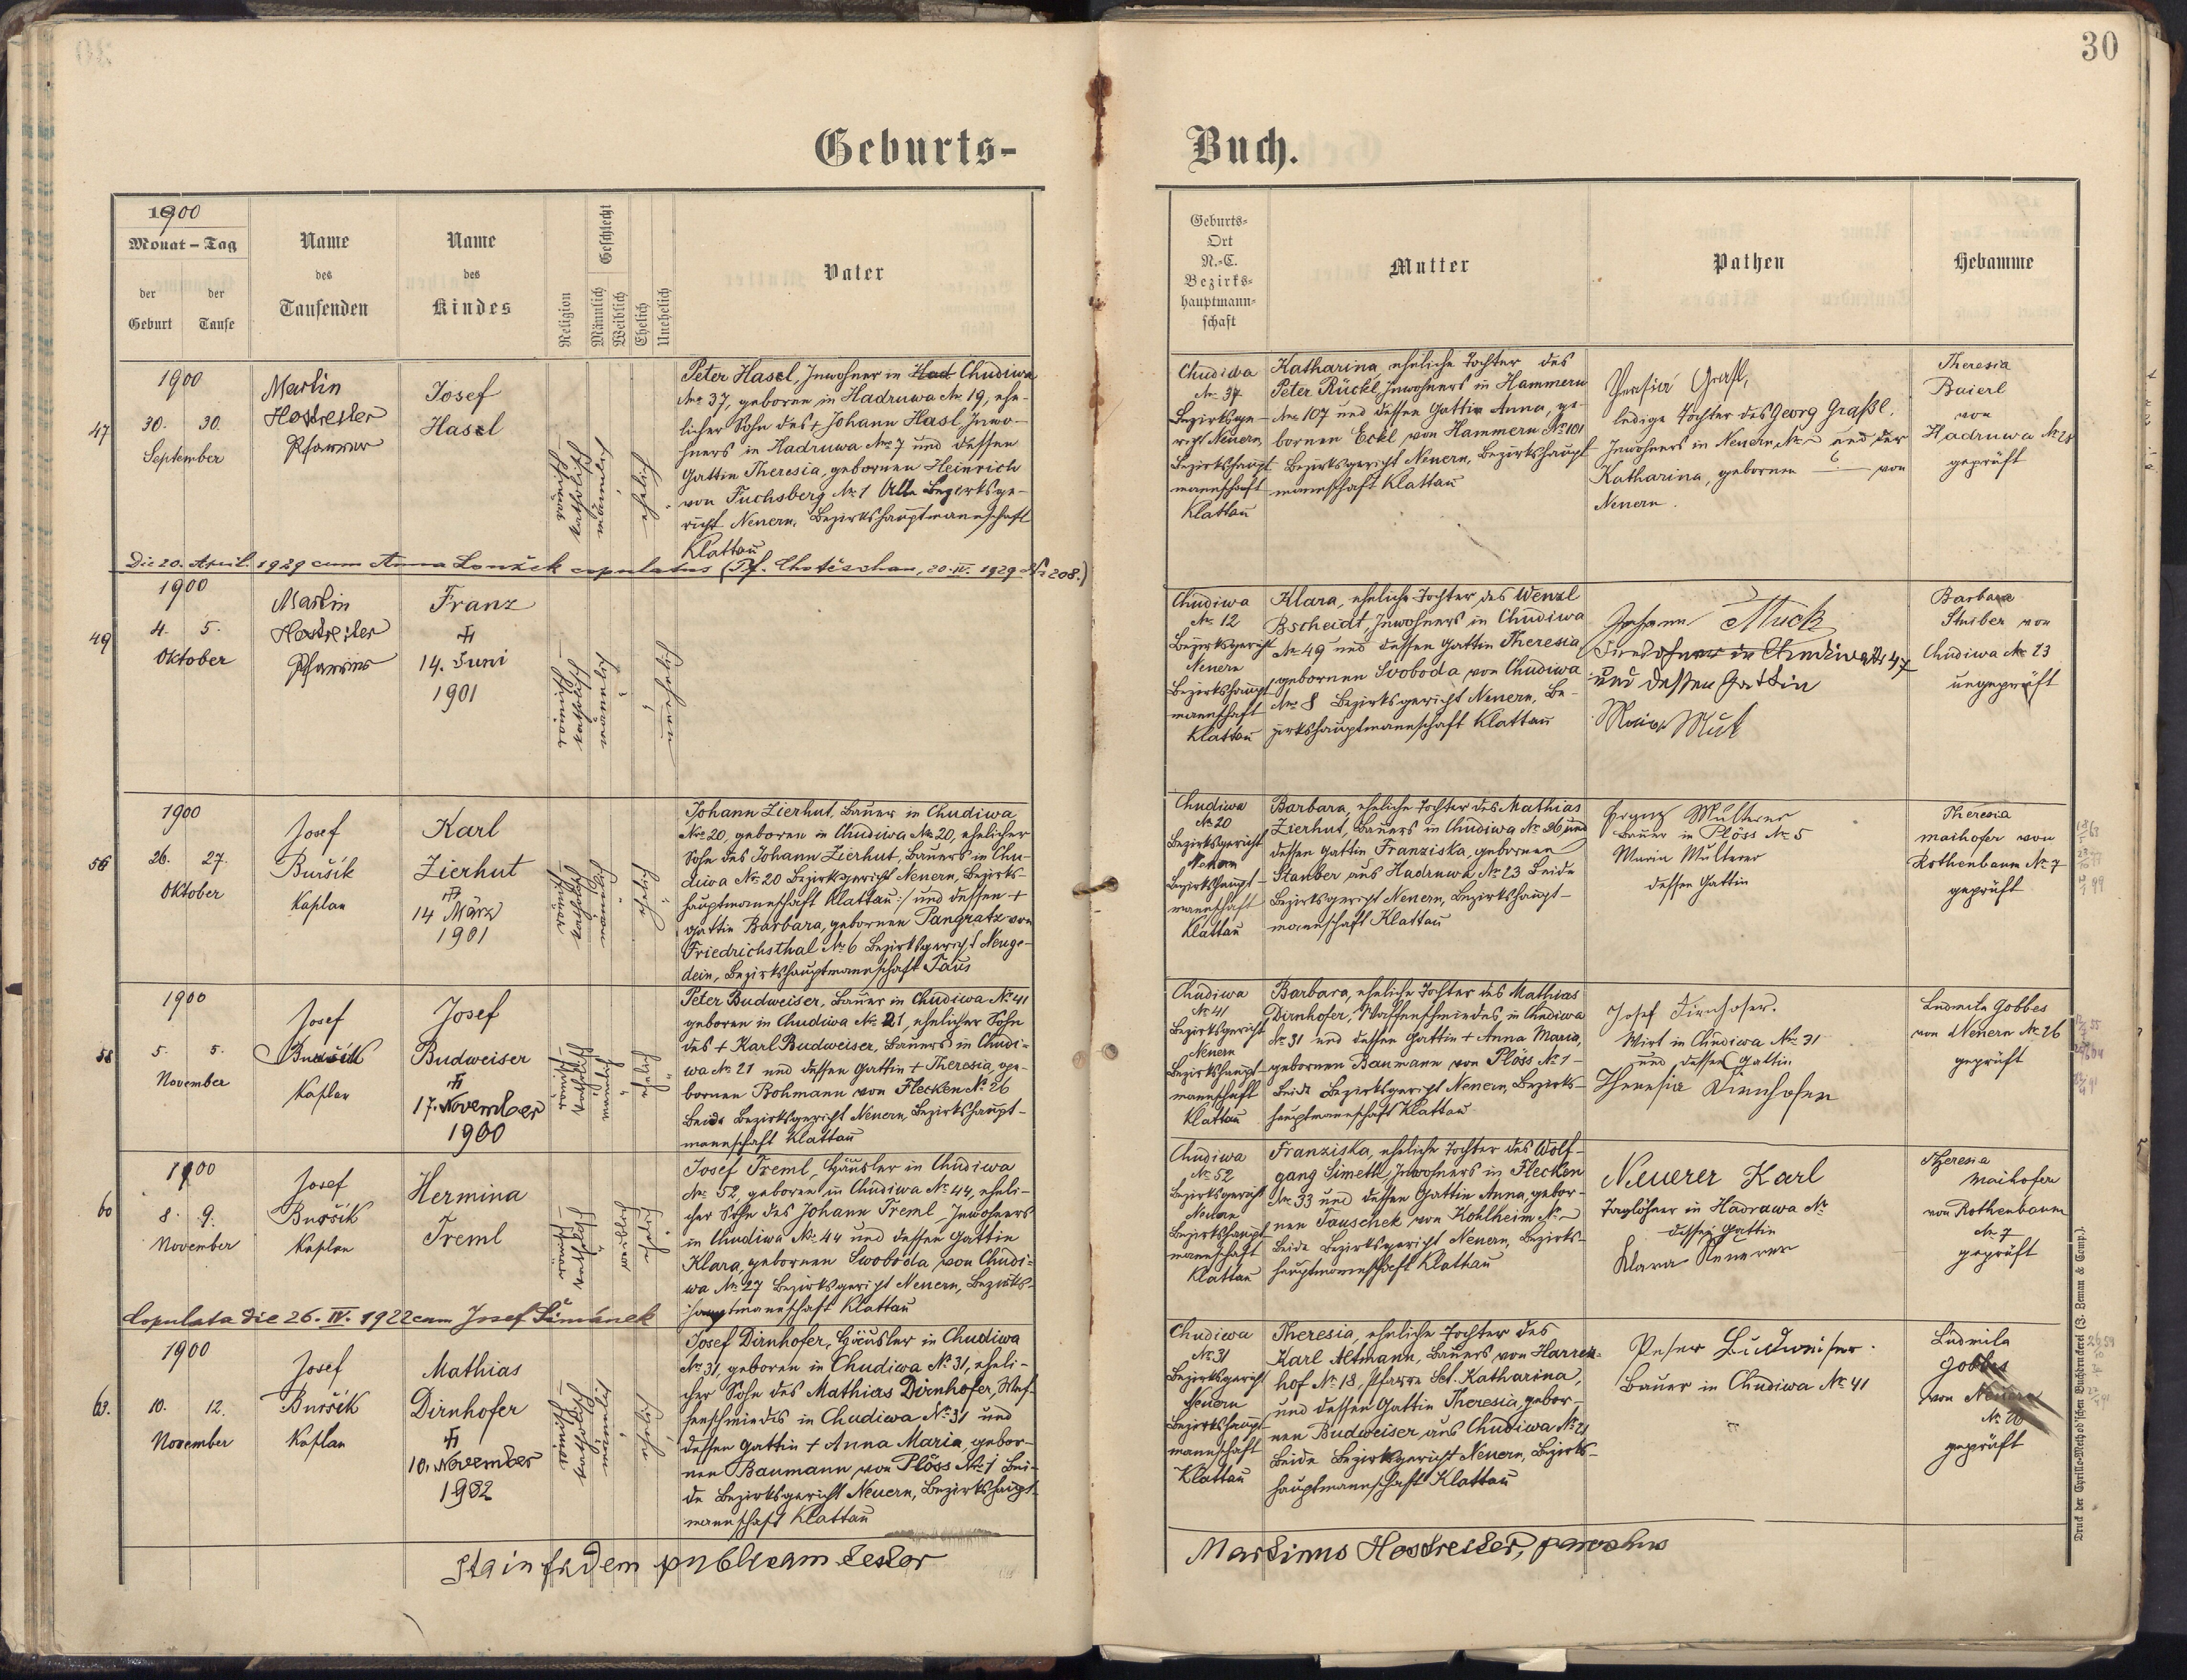 30
Geburts-
Buch.
1900
Monat – Tag
der Geburt
der Taufe
Name des Taufenden
Name des Kindes
Religion
Geschlecht
Männlich
Weiblich
Ehelich
Unehelich
Vater
Geburts-
Ort
N.-C.
Bezirks-
hauptmann-
schaft
Mutter
Pathen
Hebamme
47
1900
30. 30.
September
Martin
Hostreiter
Pfarrer
Josef
Hasel
römisch-
katholisch
männlich
ehelich
Peter Hasel, Inwohner in Had Chudiwa
Nro 37, geboren in Hadruwa Nr. 19, ehe-
licher Sohn des + Johann Hasl, Inwo-
hners in Hadruwa Nro 7 und dessen
Gattin Theresia, gebornen Heinrich
von Fuchsberg Nr. 1 Alle Bezirksge-
richt Neuern, Bezirkshauptmannschaft
Klattau
Chudiwa
Nr. 37
Bezirksge-
richt Neuern,
Bezirkshaupt-
mannschaft
Klattau
Katharina, eheliche Tochter des
Peter Rückl, Inwohners in Hammern
Nro 107 und dessen Gattin Anna, ge-
bornen Eckl von Hammern No 101
Bezirksgericht Neuern, Bezirkshaupt-
mannschaft Klattau
ledige Tochter des Georg Graßl.
Inwohners in Neuern Nr. und der
Katharina, gebornen von
Neuern.
Theresia
Baierl
von
Hadruwa No 28
geprüft
Die 20. April. 1929 cum Anna Lonžek copulatus (Pf. Chotěschau, 20.IV. 1929 Nr 208.)
49
1900
4. 5.
Oktober
Martin
Hostreiter
Pfarrer
Franz
14. Juni
1901
römisch-
katholisch
männlich
unehelich
Chudiwa
Nr. 12
Bezirksgericht
Neuern
Bezirkshaupt-
mannschaft
Klattau
Klara, eheliche Tochter des Wenzl
Bscheidt, Inwohners in Chudiwa
Nr. 49 und dessen Gattin Theresia
gebornen Svoboda von Chudiwa
Nro 8 Bezirksgericht Neuern, Be-
zirkshauptmannschaft Klattau
Johann Muck
Inwohner in Chudiwa Nr 47
und dessen Gattin
Barbara
von
Chudiwa Nr 23
ungeprüft
56
1900
26. 27.
Oktober
Josef
Buršík
Kaplan
Karl
Zierhut
14 März
1901
römisch-
katholisch
männlich
ehelich
Johann Zierhut, Bauer in Chudiwa
Nro 20, geboren in Chudiwa Nr. 20, ehelicher
Sohn des Johann Zierhut, Bauers in Chu-
diwa Nr. 20 Bezirksgericht Neuern, Bezirks-
hauptmannschaft Klattau :/ und dessen +
Gattin Barbara, gebornen Pangratz von
Friedrichsthal Nr. 6 Bezirksgericht Neuge-
dein, Bezirkshauptmannschaft Taus
Chudiwa
Nr. 20
Bezirksgericht
Neuern
Bezirkshaupt-
mannschaft
Klattau
Barbara, eheliche Tochter des Mathias
Zierhut, Bauers in Chudiwa Nr. 36 und
dessen Gattin Franziska, gebornen
Stauber aus Hadruwa, Nr. 23 Beide
Bezirksgericht Neuern, Bezirkshaupt-
mannschaft Klattau
Franz Multerer
Bauer in Plöss Nr. 5
Maria Multerer
dessen Gattin
Theresia
Maihofer von
Rothenbaum No 7
geprüft
58
1900
5. 5.
November
Josef
Buršík
Kaplan
Josef
Budweiser
17. November
1900
römisch-
katholisch
männlich
ehelich
Peter Budweiser, Bauer in Chudiwa No 41
geboren in Chudiwa Nr. 21, ehelicher Sohn
des + Karl Budweiser, Bauers in Chudi-
wa Nr. 21 und dessen Gattin + Theresia, ge-
bornen Bohmann von Flecken No 26
Beide Bezirksgericht Neuern, Bezirkshaupt-
mannschaft Klattau
Chudiwa
No 41
Bezirksgericht
Neuern
Bezirkshaupt-
mannschaft
Klattau
Barbara, eheliche Tochter des Mathias
Dirnhofer, Waffenschmiedes, in Chudiwa
Nr. 31 und dessen Gattin + Anna Maria,
gebornen Baumann von Plöss No 1 -
Beide Bezirksgericht Neuern, Bezirks-
hauptmannschaft Klattau
Josef Dirnhofer.
Wirt in Chudiwa No 31
und dessen Gattin
Theresia Dirnhofer
Ludmila Gobbes
von Neuern Nr. 26
geprüft
60
1900
8. 9.
November
Josef
Buršík
Kaplan
Hermina
Treml
römisch-
katholisch
weiblich
ehelich
Josef Treml, Häusler in Chudiwa
Nr. 52, geboren in Chudiwa No 44, eheli-
cher Sohn des Johann Treml, Inwohners
in Chudiwa No 44 und dessen Gattin
Klara, gebornen Swoboda von Chudi-
wa No 27 Bezirksgericht Neuern, Bezirks-
hauptmannschaft Klattau
Chudiwa
No 52
Bezirksgericht
Neuern
Bezirkshaupt-
mannschaft
Klattau
Franziska, eheliche Tochter des Wolf-
gang Simeth, Inwohners in Flecken
Nr. 33 und dessen Gattin Anna, gebor-
nen Tauschek von Kohlheim No -
Beide Bezirksgericht Neuern, Bezirks-
hauptmannschaft Klattau
Neuerer Karl
Taglöhner in Hadrawa Nr
dessen Gattin
Klara Neuerer
Theresia
Maihofer
von Rothenbaum
Nr. 7
geprüft
Copulata die 26. IV. 1922 cum Josef Šimánek
63.
1900
10. 12.
November
Josef
Buršík
Kaplan
Mathias
Dirnhofer
10. November
1902
römisch-
katholisch
männlich
ehelich
Josef Dirnhofer, Häusler in Chudiwa
No 31, geboren in Chudiwa No 31, eheli-
cher Sohn des Mathias Dirnhofer, Waf-
fenschmiedes in Chudiwa No 31 und
dessen Gattin + Anna Maria, gebor-
nen Baumann von Plöss Nr. 1 Bei-
de Bezirksgericht Neuern, Bezirkshaupt-
mannschaft Klattau
Chudiwa
No 31
Bezirksgericht
Neuern
Bezirkshaupt-
mannschaft
Klattau
Theresia, eheliche Tochter des
Karl Altmann, Bauers von Harren-
hof No 18, Pfarre Set. Katharina,
und dessen Gattin Theresia, gebor-
nen Budweiser, aus Chudiwa No 21
Beide Bezirksgericht Neuern, Bezirks-
hauptmannschaft Klattau
Peter Budweiser.
Bauer in Chudiwa No 41
Ludmila
Gobbes
von Neuern
No 26
geprüft
Ita in fidem publicam testor
Martinus Hostreiter, parochus
Druck der Cyrillo-Method'schen Buchdruckerei (J. Zeman & Comp.).